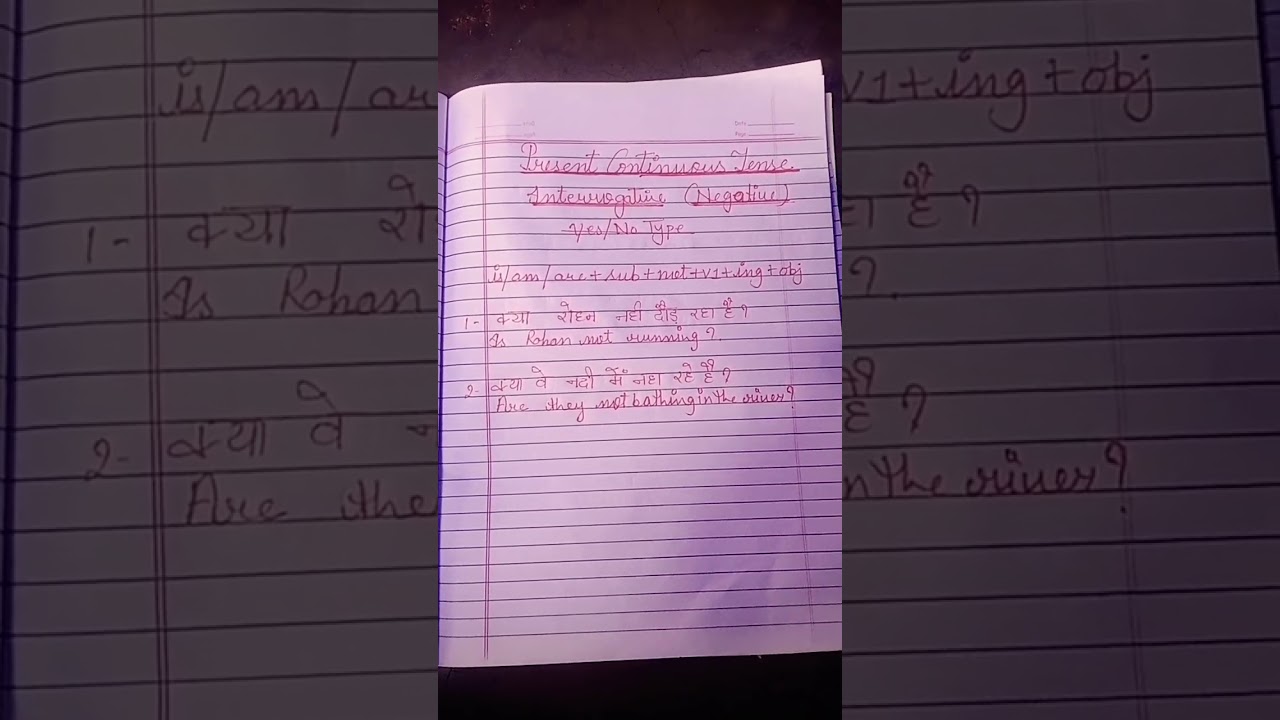 Date
Page
Present Continuous Tense
Interrogative (Negative)
Yes/No Type
is/am/are+sub+not+v1+ing+obj
1- क्या रोहन नही दौड़ रहा है?
Is Rohan not running?
2- क्या वे नदी में नहा रहे है?
Are they not bathing in the river?